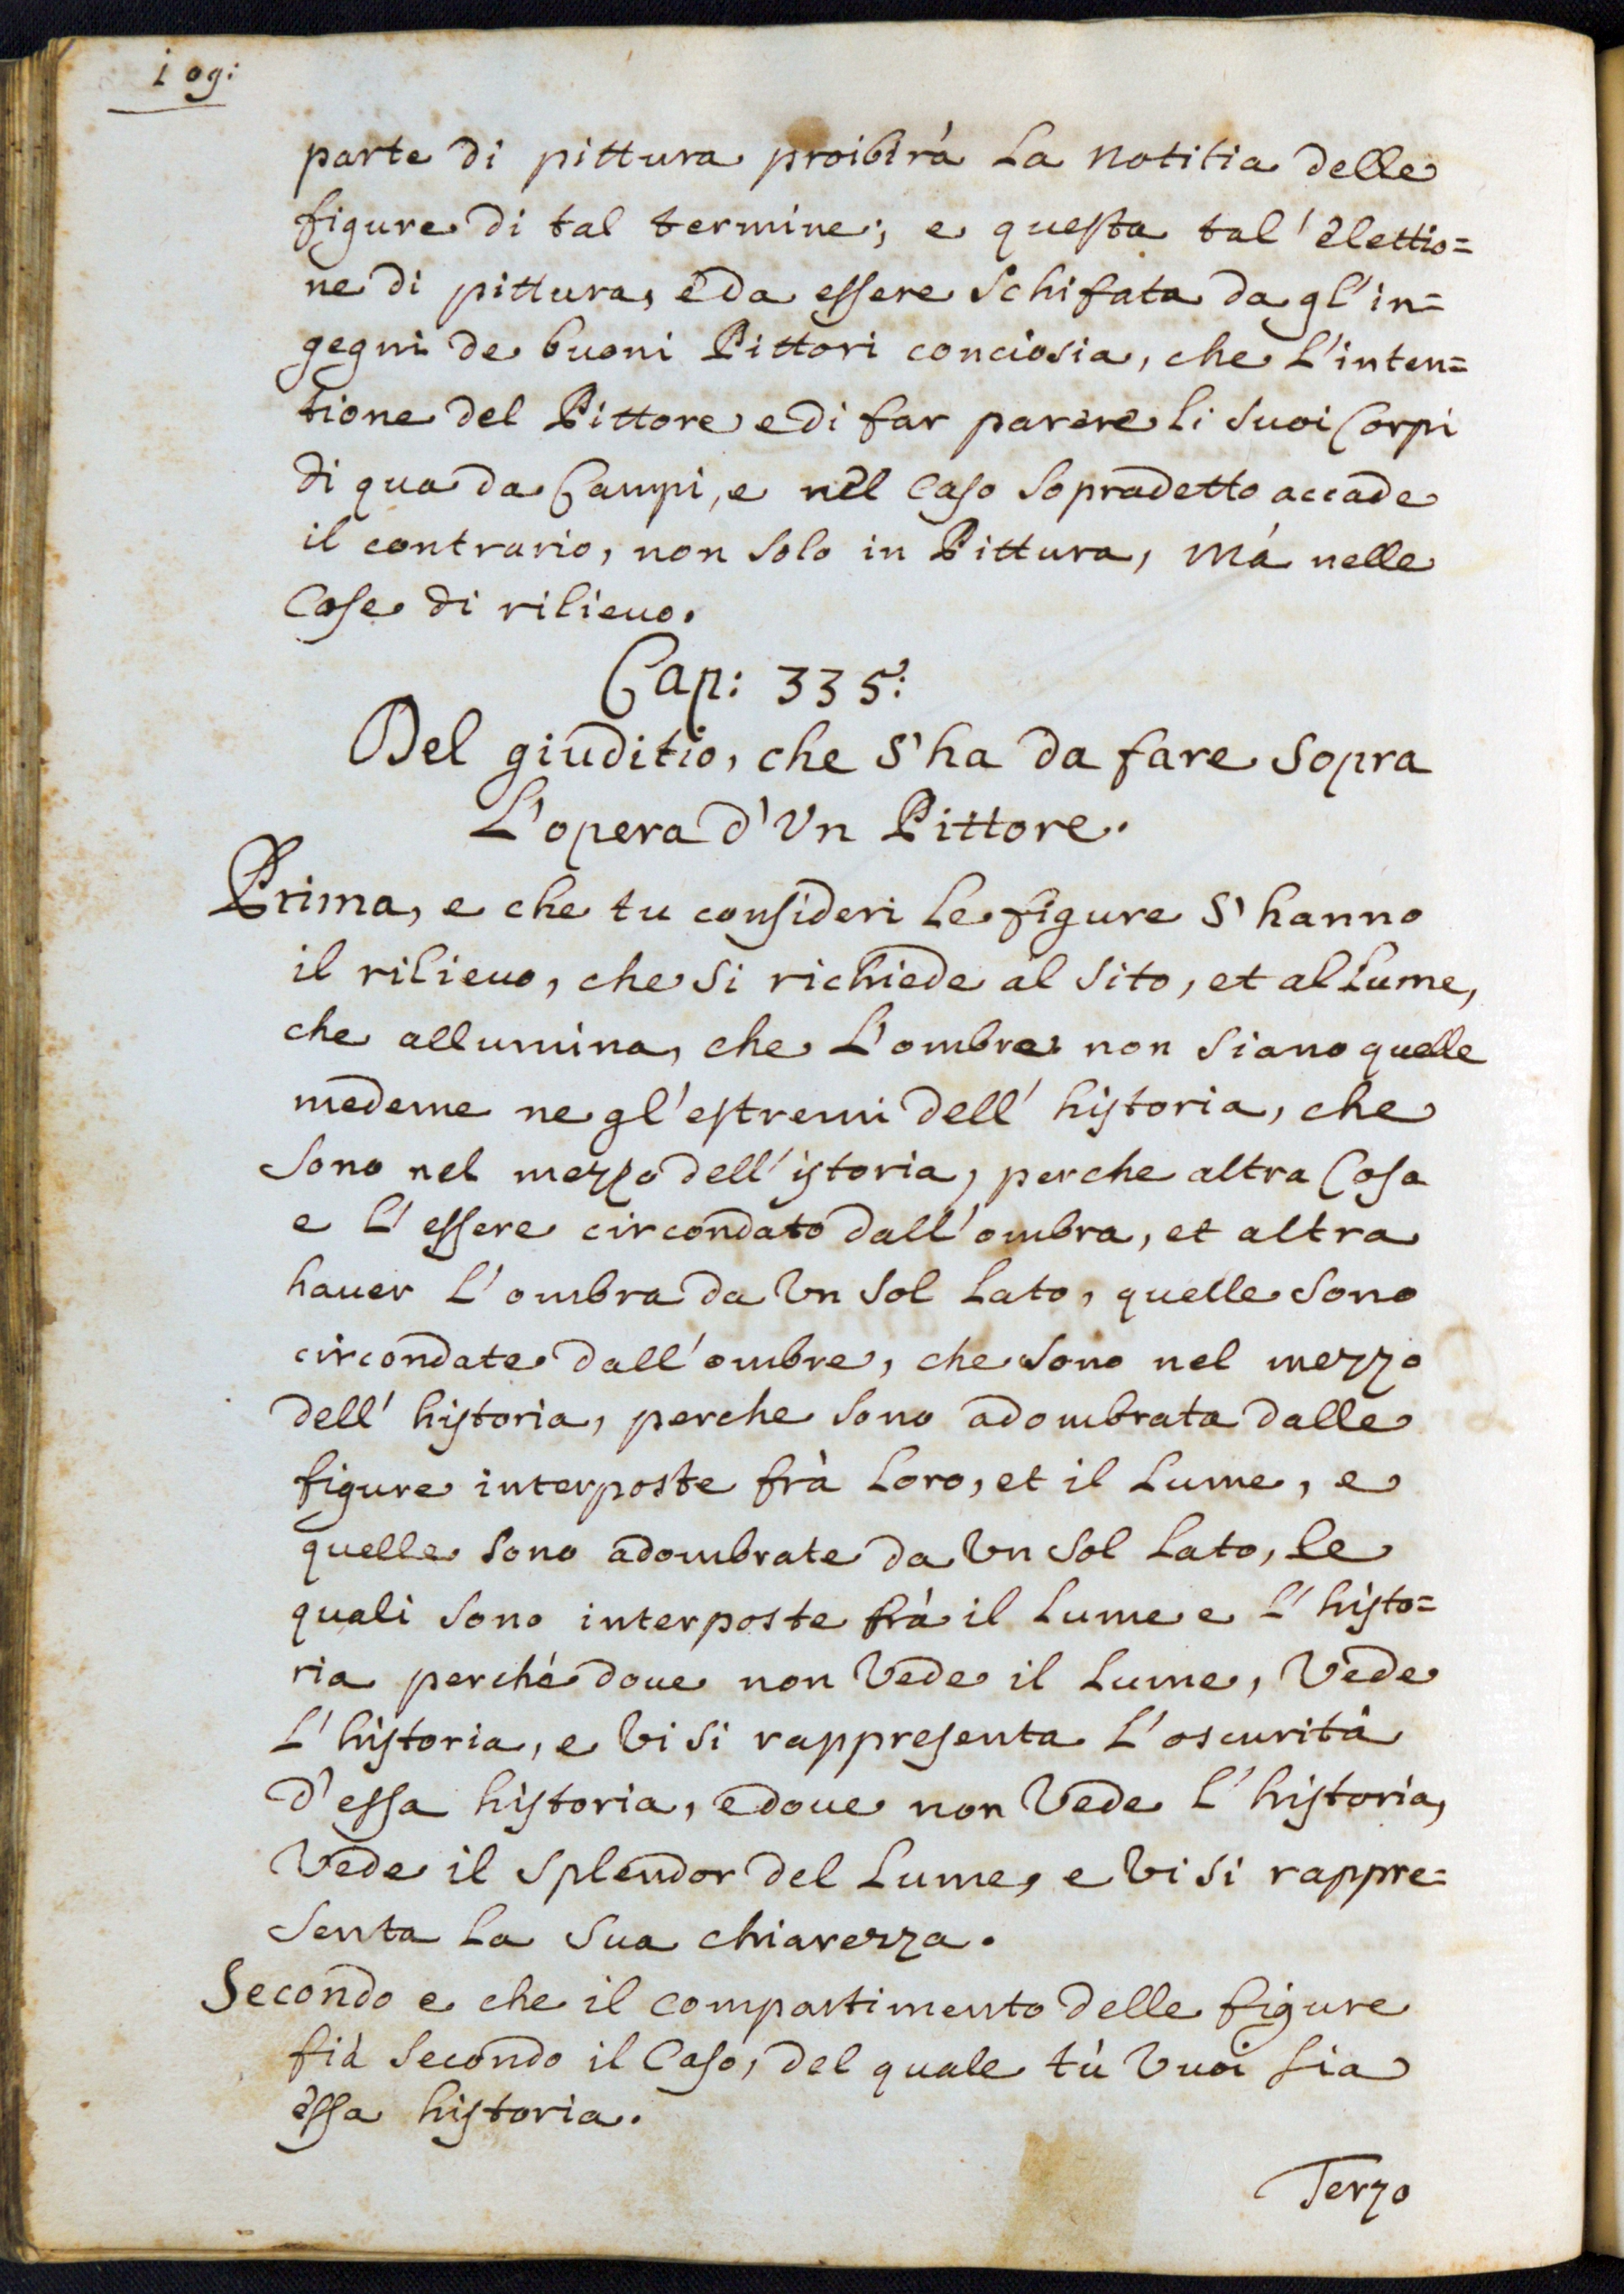 109:
parte di pittura proibirà la notitia delle
figure di tal termine; e questa tal' elettio=
ne di pittura, e da essere schifata da gl'in=
gegni de buoni Pittori conciosia, che l'inten=
tione del Pittore e di far parere li suoi Corpi
di qua da Campi, e nel caso sopradetto accade
il contrario, non solo in Pittura, mà nelle
Cose di rilieuo.
Cap: 335:
Del giuditio, che s'ha da fare sopra
L'opera d'Vn Pittore.
Prima, e che tu consideri le figure s'hanno
il rilieuo, che si richiede al sito, et al Lume,
che allumina, che l'ombre non siano quelle
medeme ne gl'estremi dell' historia, che
sono nel mezzo dell'istoria, perche altra Cosa
e l'essere circondato dall'ombra, et altra
hauer l'ombra da Vn sol lato, quelle sono
circondate dall'ombre, che sono nel mezzo
dell' historia, perche sono adombrata dalle
figure interposte frà loro, et il lume, e
quelle sono adombrate da Vn sol lato, le
quali sono interposte frà il lume e l'histo=
ria perché doue non Vede il lume, Vede
l'historia, e Vi si rappresenta l'oscurità
d'essa historia, e doue non Vede l'historia,
Vede il splendor del lume, e Vi si rappre=
senta la sua chiarezza.
Secondo e che il compartimento delle figure
fià secondo il Caso, del quale tù Vuoi sia
essa historia.
Terzo